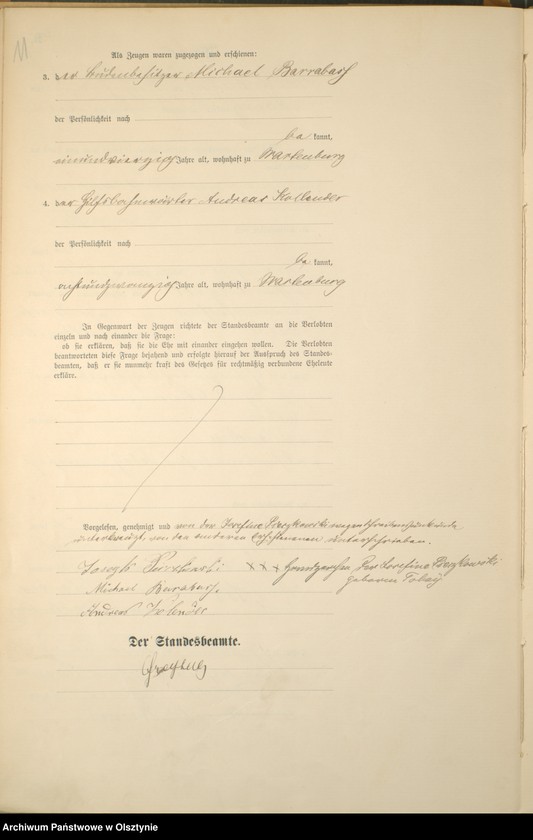 11
Als Zeugen waren zugezogen und erschienen:
3. der Budenbesitzer Michael Barrabasch
der Persönlichkeit nach
be kannt,
einundvierzig Jahre alt, wohnhaft zu Wartenburg
4. der Hilfsbahnwärter Andreas Kollender
der Persönlichkeit nach
be kannt,
achtundzwanzig Jahre alt, wohnhaft zu Wartenburg
In Gegenwart der Zeugen richtete der Standesbeamte an die Verlobten
einzeln und nach einander die Frage:
ob sie erklären, daß sie die Ehe mit einander eingehen wollen. Die Verlobten
beantworteten diese Frage bejahend und erfolgte hierauf der Ausspruch des Standes-
beamten, daß er sie nunmehr kraft des Gesetzes für rechtmäßig verbundene Eheleute
erkläre.
Vorgelesen, genehmigt und von der Josefine wegen
von den anderen Erschienenen unterschrieben.
Joseph
xxx Handzeichen der Josefine
Michael Barabasch
geborenen
Andreas
Der Standesbeamte.
Archiwum Państwowe w Olsztynie